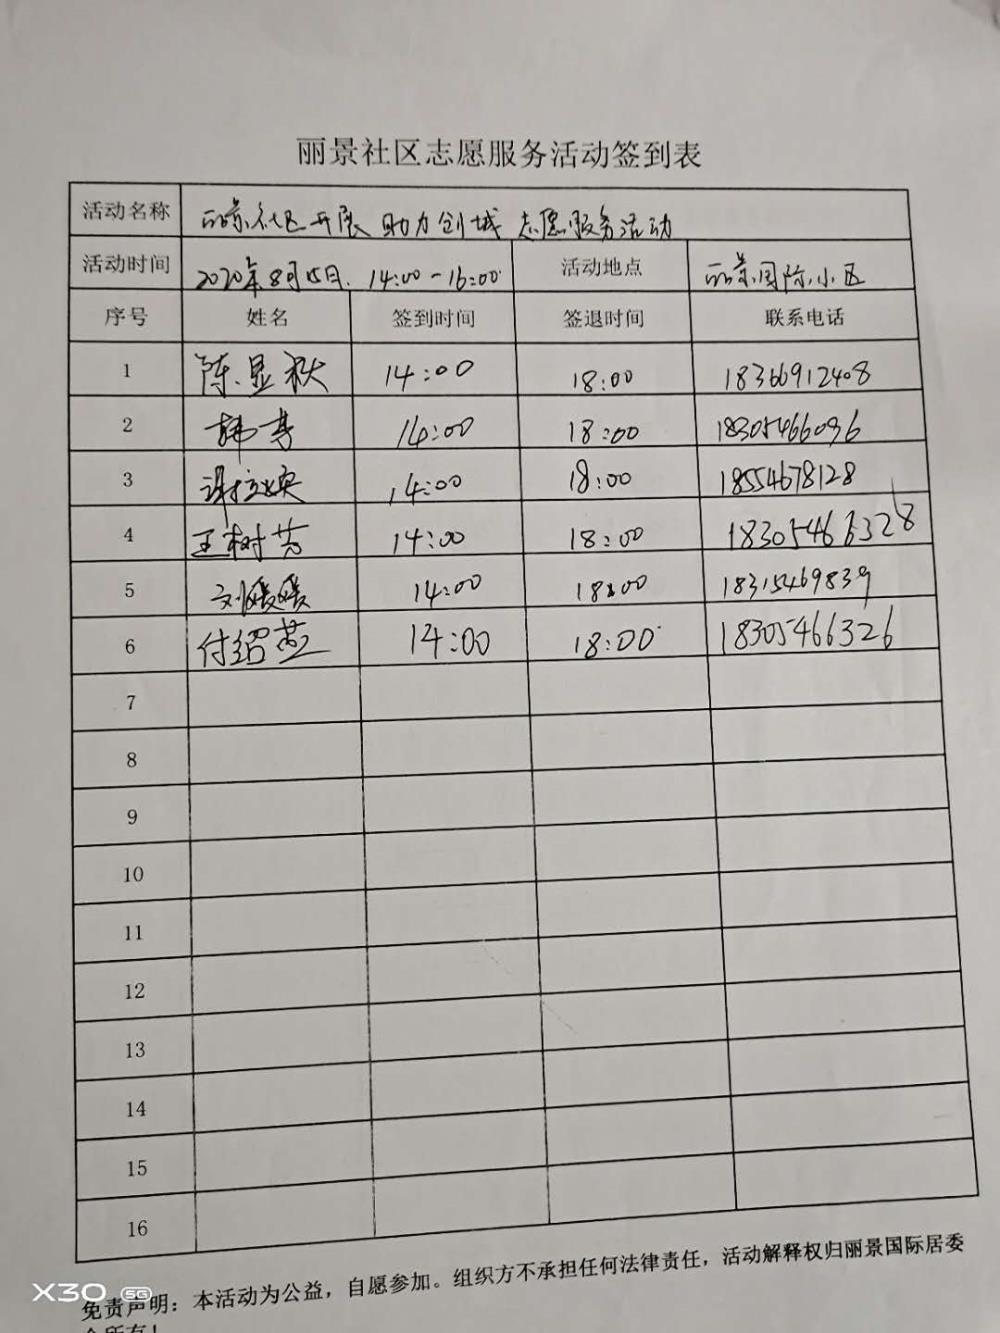 丽景社区志愿服务活动签到表
活动名称 丽景社区开展助力创城志愿服务活动
活动时间 2020年8月15日. 14:00-16:00 活动地点 丽景国际小区
序号 姓名 签到时间 签退时间 联系电话
1 陈显秋 14:00 18:00 18366912408
2 14:00 18:00 18305466096
3 14:00 18:00 18554678128
4 王树芳 14:00 18:00 18305466328
5 刘媛媛 14:00 18:00 18315469839
6 付绍燕 14:00 18:00 18305466326
7
8
9
10
11
12
13
14
15
16
免责声明：本活动为公益，自愿参加。组织方不承担任何法律责任，活动解释权归丽景国际居委
会所有！
X30 5G